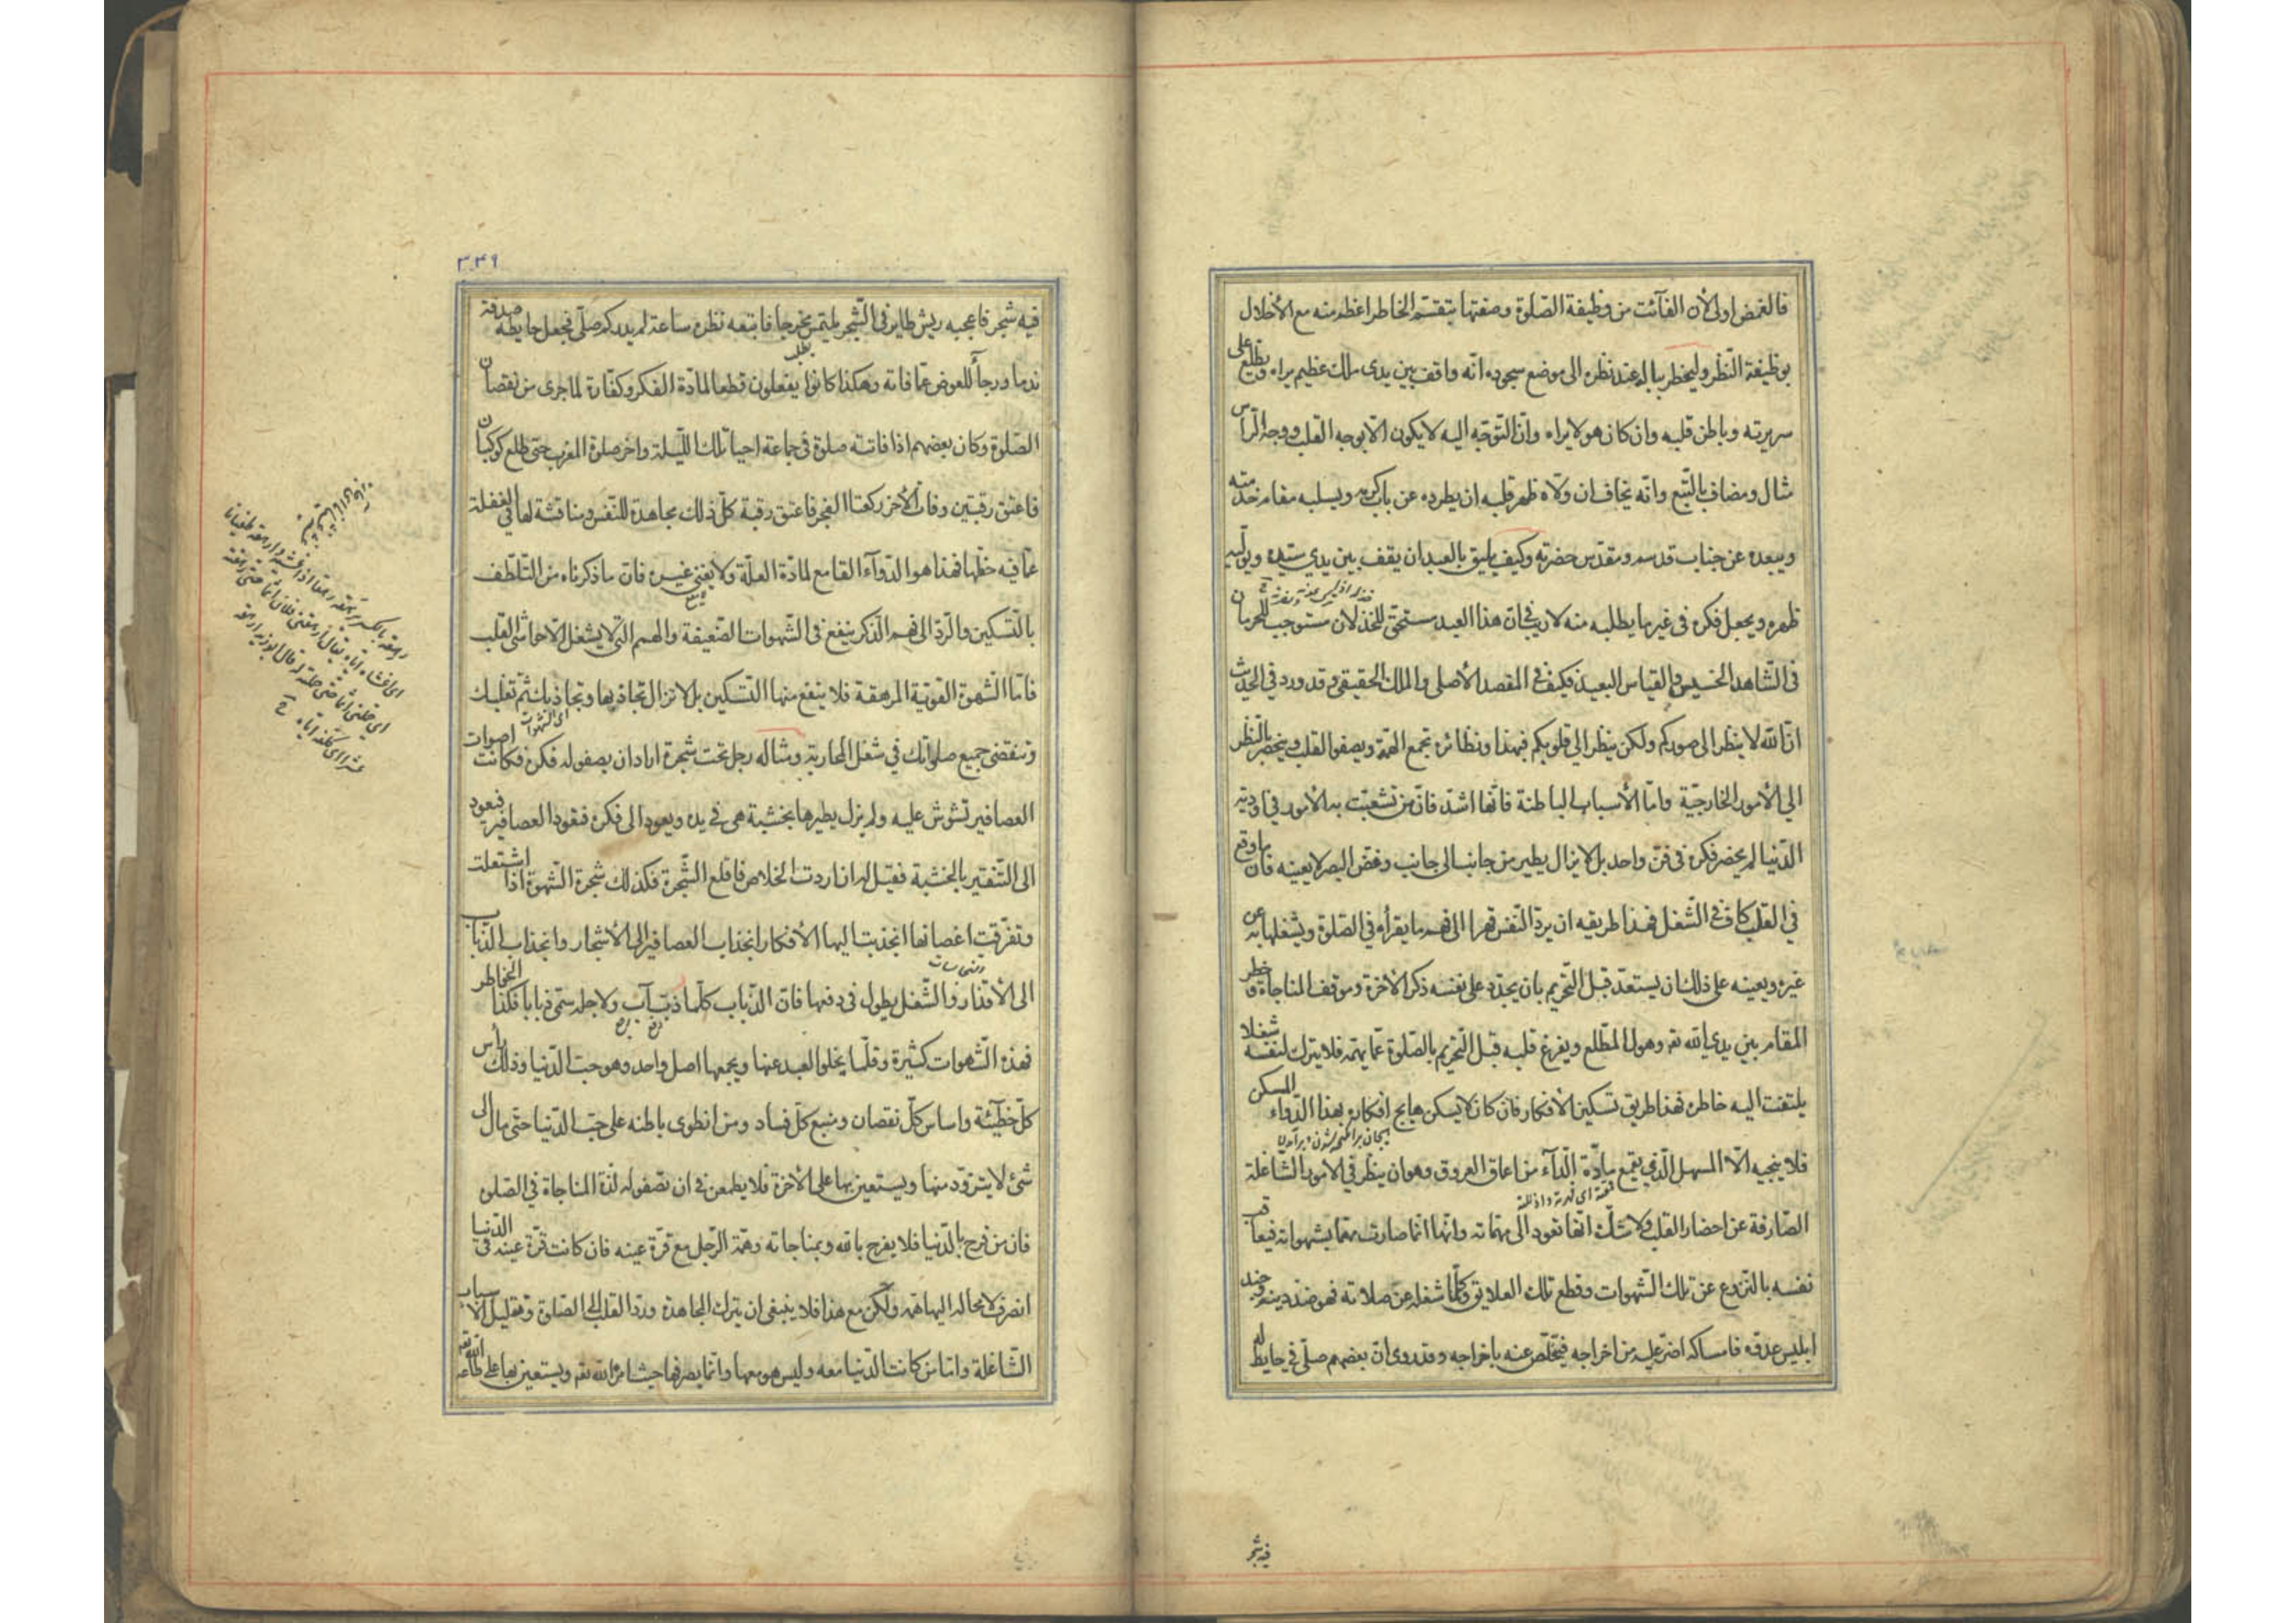 فالغمض اولى لأن الفآئت من وظيفة الصلوة وصفتها بتقسّم الخاطر اعظم منه مع الأخلال
بوظيفة النّظر وليخطر بباله عند نظره الى موضع سجوده انّه واقف بين يدى ملك عظيم يراه ويطّلع على
سريرته وباطن قلبه وان كان هو لا يراه وانّ التوجّه اليه لا يكون الّا بوجه القلب ووجه الرأس
مثال ومضاف بالتّبع وانّه يخاف ان ولّاه ظهر قلبه ان يطرده عن باب كرمه ويسلبه مقام خدمته
ويبعده عن جناب قدسه ومقدّس حضرته وكيف يليق بالعبد ان يقف بين يدي سيّده ويولّيه
ظهره ويجعل فكره فى غير ما يطلبه منه لا ريب فى انّ هذا العبد مستحقّ للخذلان مستوجب للحرمان
فى الشّاهد الخسيس والقياس البعيد فكيف فى المقصد الأصلى والملك الحقيقى وقد ورد فى الحديث
انّ الله لا ينظر الى صوركم ولكن ينظر الى قلوبكم فبهذا ونظائره تجمع الهمّة ويصفو القلب وينحصر بالنظر
الى الأمور الخارجيّة وامّا الأسباب الباطنة فانّها اشدّ فانّ من تشعّبت به الأمور فى اودية
الدّنيا لم يحضر فكره فى فنّ واحد بل لا يزال يطير من جانب الى جانب وغضّ البصر لا يعينه فانّ ما وقع
فى القلب كاف فى الشّغل فهذا طريقه ان يردّ النّفس قهرا الى فهم ما يقرأه فى الصلوة ويشغلها به عن
غيره ويعينه على ذلك ان يستعدّ قبل التّحريم بان يجدّد على نفسه ذكر الأخرة وموقف المناجاة وخطر
المقام بين يدي الله تعه وهول المطّلع ويفرغ قلبه قبل التحريم بالصّلوة عمّا يهمّه فلا يترك لنفسه شغلا
يلتفت اليه خاطره فهذا طريق تسكين الأفكار فان كان لا يسكن هايج افكاره بهذا الدّواء المسكن
فلا ينجيه الّا المسهل الّذى يقمع مادّة الدّآء من اعماق العروق وهو ان ينظر فى الأمور الشّاغلة
الصّارفة عن احضار القلب ولا شكّ انّها تعود الى مهمّاته وانّها انّما صارت مهمّا بشهواته فيعاقب
نفسه بالنّزوع عن تلك الشّهوات وقطع تلك العلايق وكلّما شغله عن صلاته فهو ضدّ دينه وجند
ابليس عدوّه فامساكه اضرّ عليه من اخراجه فيتخلّص عنه باخراجه وقد روى انّ بعضهم صلّى فى حايط له
فيه شجر
٣٤٩
فيه شجر فاعجبه ريش طاير فى الشّجر يلتمس مخرجا فاتبعه نظره ساعة لم يدر كم صلّى فجعل حايطه صدقة
ندما ورجآء للعوض عمّا فاته وهكذا كانوا يفعلون قطعا لمادّة الفكر وكفّارة لما جرى من نقصان
الصّلوة وكان بعضهم اذا فاتته صلوة فى جماعة احيا تلك اللّيلة واخر صلوة المغرب حتى طلع كوكبان
فاعتق رقبتين وفات الأخر ركعتا الفجر فاعتق رقبة كلّ ذلك مجاهدة للنّفس ومناقشة لها فى الغفلة
عمّا فيه حظّها فهذا هو الدّوآء القامع لمادّة العلّة ولا يغنى غيره فانّ ما ذكرناه من التّلطّف
بالتّسكين والرّد الى فهم الذّكر ينفع فى الشّهوات الضّعيفة والهمم الّتى لا يشغل الّا حواشى القلب
فامّا الشّهوة القويّة المرهقة فلا ينفع منها التّسكين بل لا تزال تجاذبها وتجاذبك ثمّ تغلبك
وتنقضى جميع صلوتك فى شغل المحاربة ومثاله رجل تحت شجرة اراد ان يصفو له فكره فكانت اصوات
العصافير تشوّش عليه ولم يزل يطيرها بخشبة هى فى يده ويعود الى فكره فتعود العصافير فيعود
الى التّنفير بالخشبة فقيل له ان اردت الخلاص فاقلع الشّجرة فكذلك شجرة الشّهوة اذا اشتعلت
وتفرّقت اغصانها انجذبت اليها الأفكار انجذاب العصافير الى الأشجار وانجذاب الذّباب
الى الأقذار والشّغل يطول فى دفعها فانّ الذّباب كلّما ذبّ آب ولاجله سمّى ذبابا فكذا الخواطر
فهذه الشّهوات كثيرة وقلّما يخلو العبد عنها ويجمعها اصل واحد وهو حبّ الدّنيا وذلك رأس
كلّ خطيّئة واساس كلّ نقصان ومنبع كلّ فساد ومن انطوى باطنه على حبّ الدّنيا حتّى مال الى
شئ لا يتزوّد منها ويستعين بها على الأخرة فلا يطمعن فى ان تصفو له لذّة المناجاة فى الصّلوة
فانّ من فرح بالدّنيا فلا يفرح بالله وبمناجاته وهمّة الرّجل مع قرّة عينه فان كانت قرّة عينه فى الدّنيا
انصرف لا محاله اليها همّه ولكن مع هذا فلا ينبغى ان يترك المجاهدة وردّ القلب الى الصّلوة وتقليل الأسباب
الشّاغلة وامّا من كانت الدّنيا معه وليس هو معها وانّما يصرفها حيث امر الله تعه ويستعين بها على طاعة الله تعه